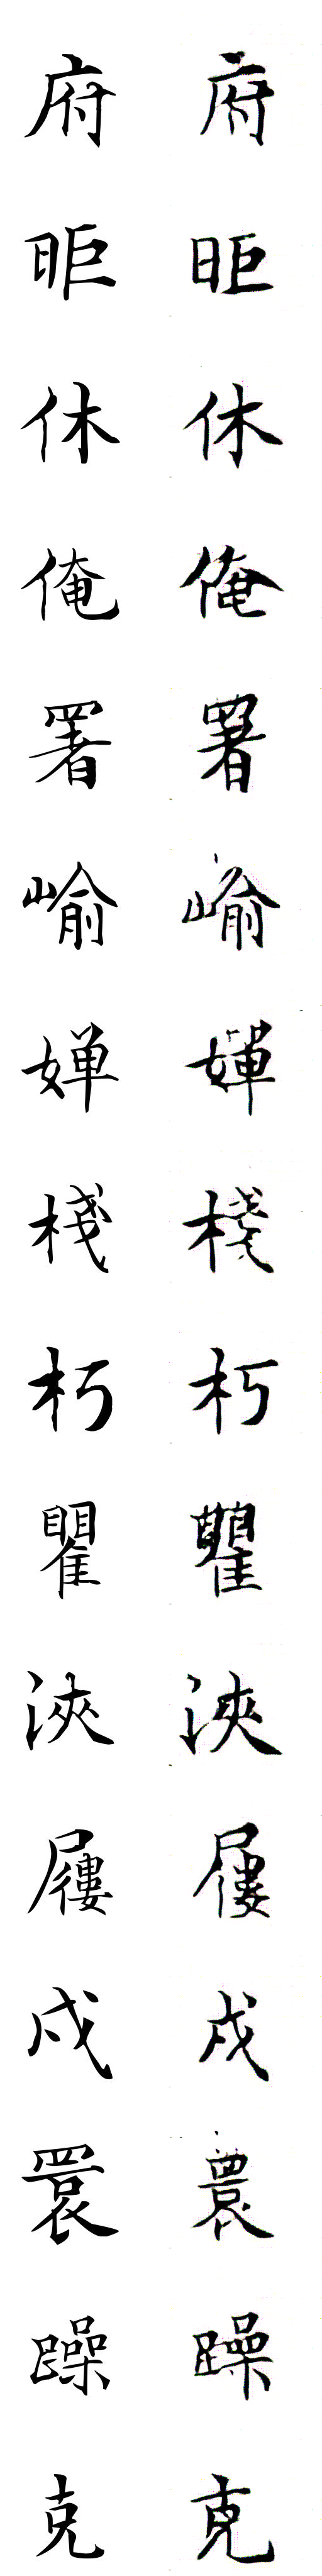 府 府
昛 昛
休 休
俺 俺
署 署
崳 崳
婵 婵
棧 棧
朽 朽
瞿 瞿
浹 浹
屨 屨
戍 戍
睘 睘
躁 躁
克 克